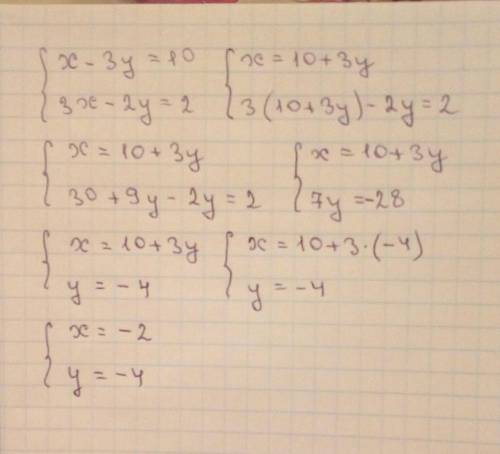 x - 3y = 10
3x - 2y = 2
x = 10 + 3y
3(10 + 3y) - 2y = 2
x = 10 + 3y
30 + 9y - 2y = 2
x = 10 + 3y
7y = -28
x = 10 + 3y
y = -4
x = 10 + 3·(-4)
y = -4
x = -2
y = -4